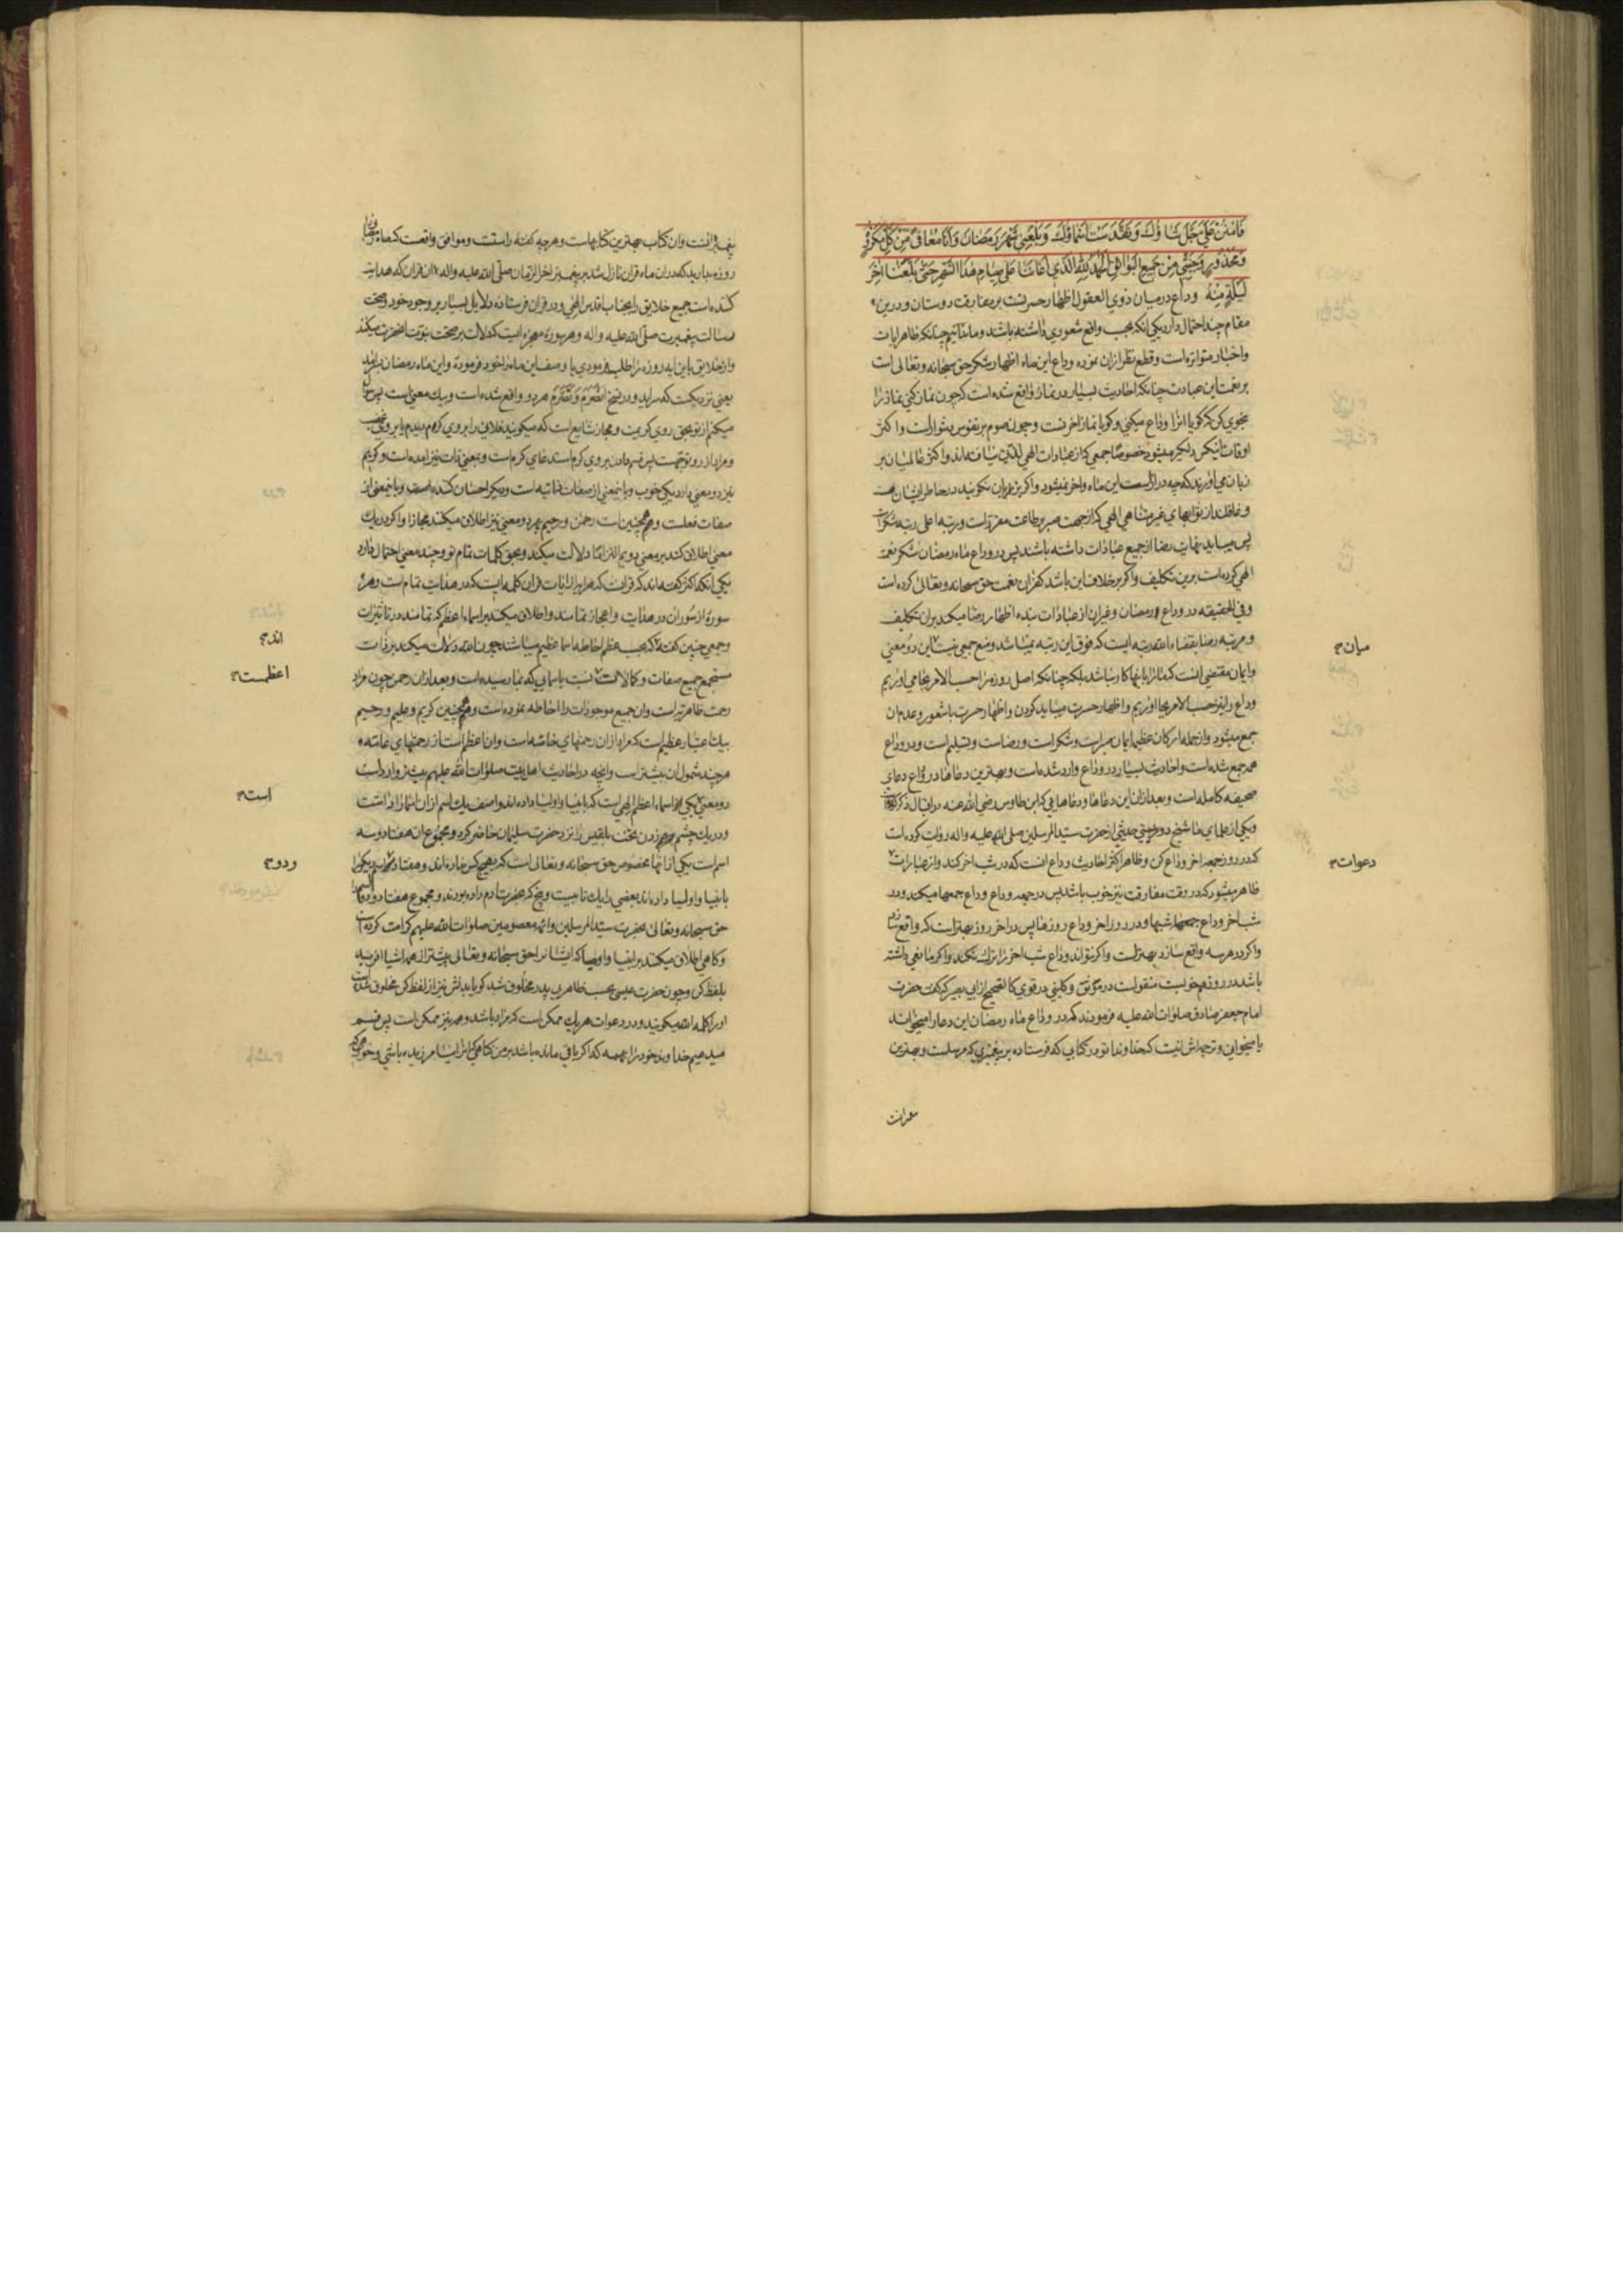 فَامْنُنْ عَلَيَّ جَلَّ ثَنَاؤُكَ وَتَقَدَّسَتْ اَسْمَاؤُكَ وَبَلِّغْنِي شَهْرَ رَمَضَانَ وَاَنَا مُعَافًى مِنْ كُلِّ مَكْرُوهٍ
وَمَحْذُورٍ وَجَنِّبْنِي مِنْ جَمِيعِ الْبَوَائِقِ اَلْحَمْدُ لِلّٰهِ الَّذِي اَعَانَنَا عَلٰى صِيَامِ هٰذَا الشَّهْرِ حَتّٰى بَلَّغَنَا اٰخِرَ
لَيْلَةٍ مِنْهُ وداع درميان ذوي العقول اظهار حسرتست بر مفارقت دوستان و درين
مقام چند احتمال دارد يكى انكه بحسب واقع شعوري داشته باشند و ما ندانيم چنانكه ظاهر ايات
واخبار متواتره است و قطع نظر از ان نموده وداع اين ماه اظهار شكر حق سبحانه وتعالى است
بر نعمت اين عبادت چنانكه احاديث بسيار در نماز واقع شده است كه چون نماز كنى نماز را
بنحوي كن كه كويا انرا وداع ميكنى و كويا نماز اخر تست و چون صوم بر نفوس دشوار است و اكثر
اوقات نيكس دلكير ميشود خصوصا جمعى كه از عبادات الهي لذتى نيافته اند و اكثر عالميان بر
زبان مي اورند كه چه دراز است اين ماه و اخر نميشود و اكر بزبان نكويند در خاطر ايشان هست
و غافلند از ثوابهاي غير متناهي الهي كه از جهت صبر بر طاعت مقرر است و رتبه اعلى رتبه شكر است
پس ميبايد نهايت رضا از جميع عبادات داشته باشند پس در وداع ماه رمضان شكر نعمت
الهي كرده است برين تكليف و اكر بر خلاف اين باشد كفران نعمت حق سبحانه وتعالى كرده است
وفي الحقيقه در وداع رمضان و غير ان از عبادات بنده اظهار رضا ميكند بر ان تكليف
و مرتبه رضا بقضاء الله رتبه ايست كه فوق اين رتبه نميباشد و منع جمعى نيست اين دو معنى
ميان
وايمان مقتضى انست كه ما را با ينها كار نباشد بلكه چنانكه اصل روزه را حسب الامر بجا مي اوريم
وداع را نيز حسب الامر بجا اوريم و اظهار حسرت ميبايد كردن و اظهار حسرت با شعور و عدم ان
جمع ميشود و از جمله اركان عظيم ايمان صبر است و شكر است و رضاست و تسليم است و در وداع
همه جمع شده است و احاديث بسيار در وداع وارد شده است و بهترين دعاها در وداع دعاي
صحيفه كامله است و بعد از ان اين دعاها و دعاهايى كه ابن طاوس رضي الله عنه در اقبال ذكر كرده
ويكى از علماي ما شيخ دوريستى حديثى از حضرت سيد المرسلين صلى الله عليه واله روايت كرده است
كه در روز جمعه اخر وداع كن و ظاهر اكثر احاديث وداع انست كه در شب اخر كند و از عبارات
دعوات
ظاهر ميشود كه در وقت مفارقت نيز خوب باشد پس در جمعه وداع وداع جمعها ميكند و در
شب اخر وداع شبها و در روز اخر وداع روزها پس در اخر روز بهتر است كه واقع سازد
واكر در هر سه واقع سازد بهتر است واكر نتواند وداع شب اخر را ترك نكند واكر مانعي داشته
باشد در روز هم خوبست منقولست در موثق و كلينى در قوي كالصحيح از ابي بصير كه كفت حضرت
امام جعفر صادق صلوات الله عليه فرمودند كه در وداع ماه رمضان اين دعا را ميخوانند
يا ميخوانى و ترجمه اش اينست كه خداوندا تو در كتابى كه فرستاده بر پيغمبري كه مرسلست و بهترين
پيغمبرانست وان كتاب بهترين كتابهاست و هر چه كفته راستست و موافق واقعست كه ماه رمضان را
روزه بداريد كه در ان ماه قران نازل شد بر پيغمبر اخر الزمان صلى الله عليه واله ان قران كه هدايت
كننده است جميع خلايق را بجناب اقدس الهي و در قران فرستاده دلايل بسيار بر وجود خود و صحت
رسالت پيغمبرت صلى الله عليه واله و هر سوره معجزه ايست كه دلالت بر صحت نبوت انحضرت ميكند
واز خلايق باين ايه روزه را طلب فرمودي يا وصف اين ماه را خود فرموده و اين ماه رمضان
يعنى نزديكست كه سر ايد و در نسخ انْصَرَمَ وَتَصَرَّمَ هر دو واقع شده است و بيك معنى است پس سوال
ميكنم از تو بحق روي كريمت و مجاز شايع است كه ميكويند فلانى را بروي كرم ديدم يا بروي غضب
و مراد از رو توجهست پس قسم دادن بروي كرم استدعاي كرم است و بمعنى ذات نيز امده است و كريم
نيز دو معنى دارد يكى خوب و باينمعنى از صفات ذاتيه است و ديكر احسان كننده است و باينمعنى از
صفات فعلست و همچنين است رحمن و رحيم بهر دو معنى نيز اطلاق ميكنند مجازا و اكر در يك
معنى اطلاق كنند بر معنى دويم التزاما دلالت ميكند و بحق كلمات تمام تو و چند معنى احتمال دارد
يكى انكه اكثر كفته اند كه قرانست كه هر ايه از ايات قران كلمه ايست كه در هدايت تمام است و هر
سوره از سور ان در هدايت و اعجاز تمامند و اطلاق ميكند بر اسماء اعظم كه تمامند در تاثيرات
وجمعى چنين كفته كه بحسب عظم احاطه اسما عظيم ميباشد چون الله دلالت ميكند بر ذات
اند
مستجمع جميع صفات و كمالات نسبت باسمايى كه بما رسيده است و بعد از ان رحمن چون مراد
اعظمست
رحمت ظاهرتر است و ان جميع موجودات را احاطه نموده است و همچنين كريم و عليم و رحيم
بيك اعتبار عظيم است كه مراد از ان رحمتهاي خاصه است و ان اعظم است از رحمتهاي عامه
هر چند شمول ان بيشتر است و انچه در احاديث اهل بيت صلوات الله عليهم بيشتر وارد است
دو معنى يكى اسماء اعظم الهي است كه بانبيا و اوليا داده اند و اصف يك اسم از ان اسما را داشت
است
و در يك چشم زدن تخت بلقيس را نزد حضرت سليمان حاضر كرد و مجموع ان هفتاد و سه
اسم است يكى از انها مخصوص حق سبحانه وتعالى است كه بهيچ كس نداده اند و هفتاد ديكر را
ودو
بانبيا و اوليا داده اند بعضى را يك تا بيست و پنج كه بحضرت ادم داده بودند و مجموع هفتاد و دو اسم را
حق سبحانه وتعالى بحضرت سيد المرسلين و ائمه معصومين صلوات الله عليهم كرامت كرده است
و كاهي اطلاق ميكنند بر انبيا و اوصيا كه ايشانرا حق سبحانه وتعالى پيشتر از همه اشيا افريده
بلفظ كن و چون حضرت عيسى بحسب ظاهر بى پدر مخلوق شد كويا بدنش نيز از لفظ كن مخلوق شده است
اورا كلمه الله ميكويند و در دعوات هر يك ممكن است كه مراد باشد و همه نيز ممكن است پس قسم
ميدهم خداوند خود را بهمه كه اكر باقى مانده باشد بر من كناهي كه انرا نيامرزيده باشي و خواهي كه
معرانت